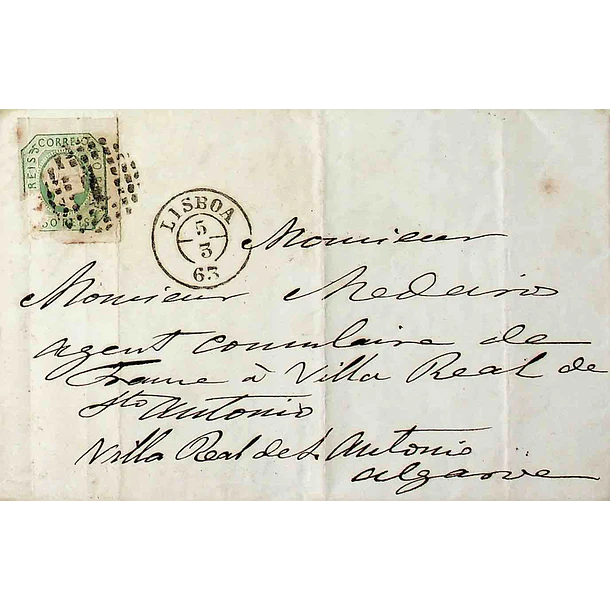 CORREIO
REIS
50 REIS
LISBOA
5
3
63
Monsieur
Monsieur Medeiros
agent consulaire de
France à Villa Real de
Sto Antonio
Villa Real de S. Antonio
Algarve